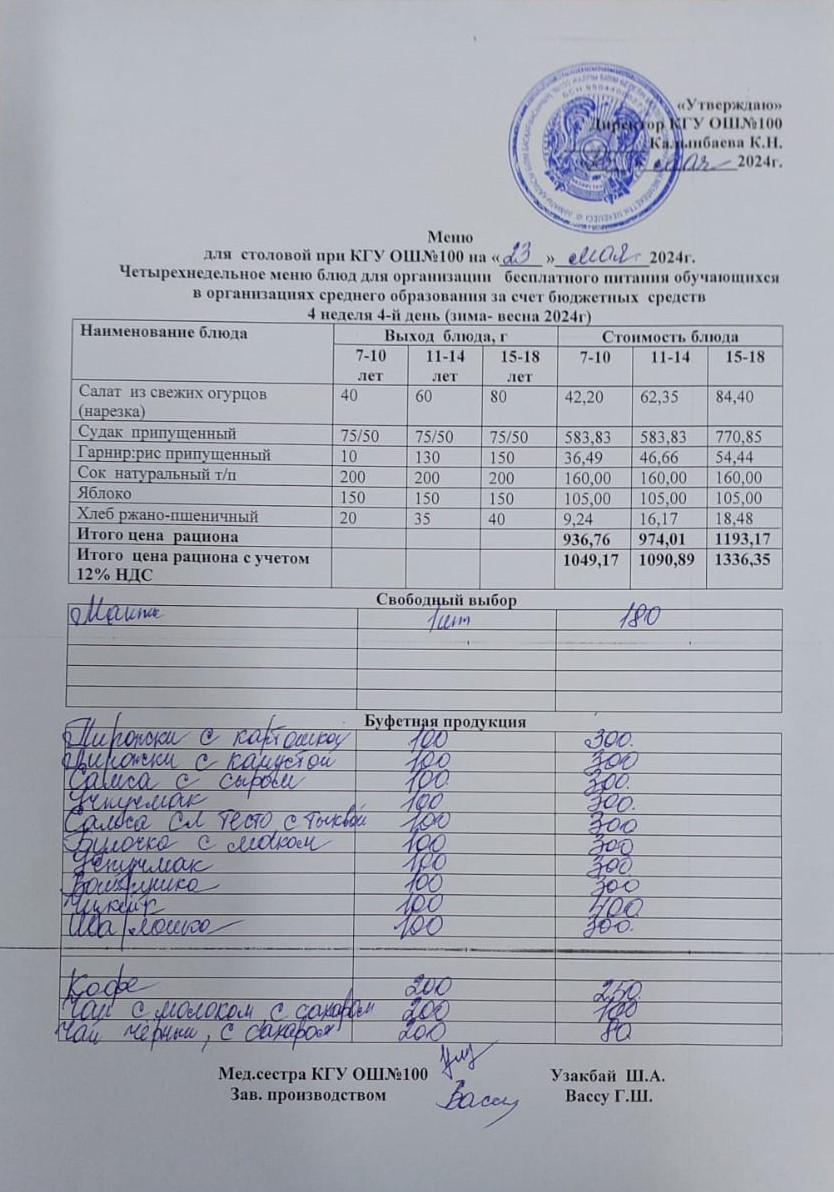 «Утверждаю»
Директор КГУ ОШ№100
Калынбаева К.Н.
2024г.
Меню
для столовой при КГУ ОШ№100 на « 23 » мая 2024г.
Четырехнедельное меню блюд для организации бесплатного питания обучающихся
в организациях среднего образования за счет бюджетных средств
4 неделя 4-й день (зима- весна 2024г)
Наименование блюда Выход блюда, г Стоимость блюда
7-10 лет 11-14 лет 15-18 лет 7-10 11-14 15-18
Салат из свежих огурцов (нарезка) 40 60 80 42,20 62,35 84,40
Судак припущенный 75/50 75/50 75/50 583,83 583,83 770,85
Гарнир:рис припущенный 10 130 150 36,49 46,66 54,44
Сок натуральный т/п 200 200 200 160,00 160,00 160,00
Яблоко 150 150 150 105,00 105,00 105,00
Хлеб ржано-пшеничный 20 35 40 9,24 16,17 18,48
Итого цена рациона 936,76 974,01 1193,17
Итого цена рациона с учетом 12% НДС 1049,17 1090,89 1336,35
Свободный выбор
Манты 1шт 180
Буфетная продукция
Пирожки с картошкой 100 300
Пирожки с капустой 100 300
Самса с сыром 100 300
Учпучмак 100 300
Самса сл тесто с тыквой 100 300
Булочка с маком 100 300
Учпучмак 100 300
100 300
100 400
100 300
Кофе 200 250
Чай с молоком с сахаром 200 100
Чай черный, с сахаром 200 80
Мед.сестра КГУ ОШ№100 Узакбай Ш.А.
Зав. производством Вассу Вассу Г.Ш.